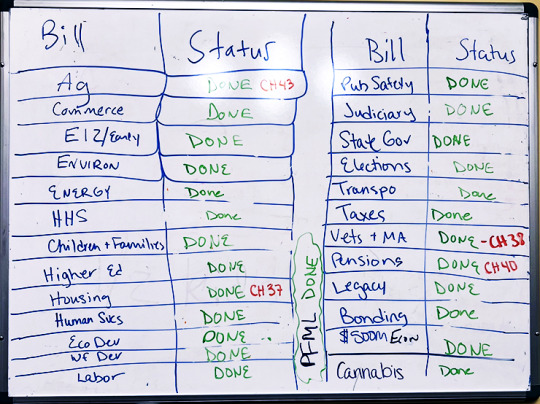 Bill Status
Ag DONE CH43
Commerce DONE
E12/Early DONE
ENVIRON DONE
ENERGY Done
HHS Done
Children + Families DONE
Higher Ed DONE
Housing DONE CH37
Human Svcs DONE
Eco Dev DONE
WF Dev DONE
Labor DONE
PFML DONE
Bill Status
Pub Safety DONE
Judiciary DONE
State Gov DONE
Elections DONE
Transpo Done
Taxes Done
Vets + MA DONE - CH38
Pensions DONE CH40
Legacy DONE
Bonding Done
$500m Econ DONE
Cannabis Done